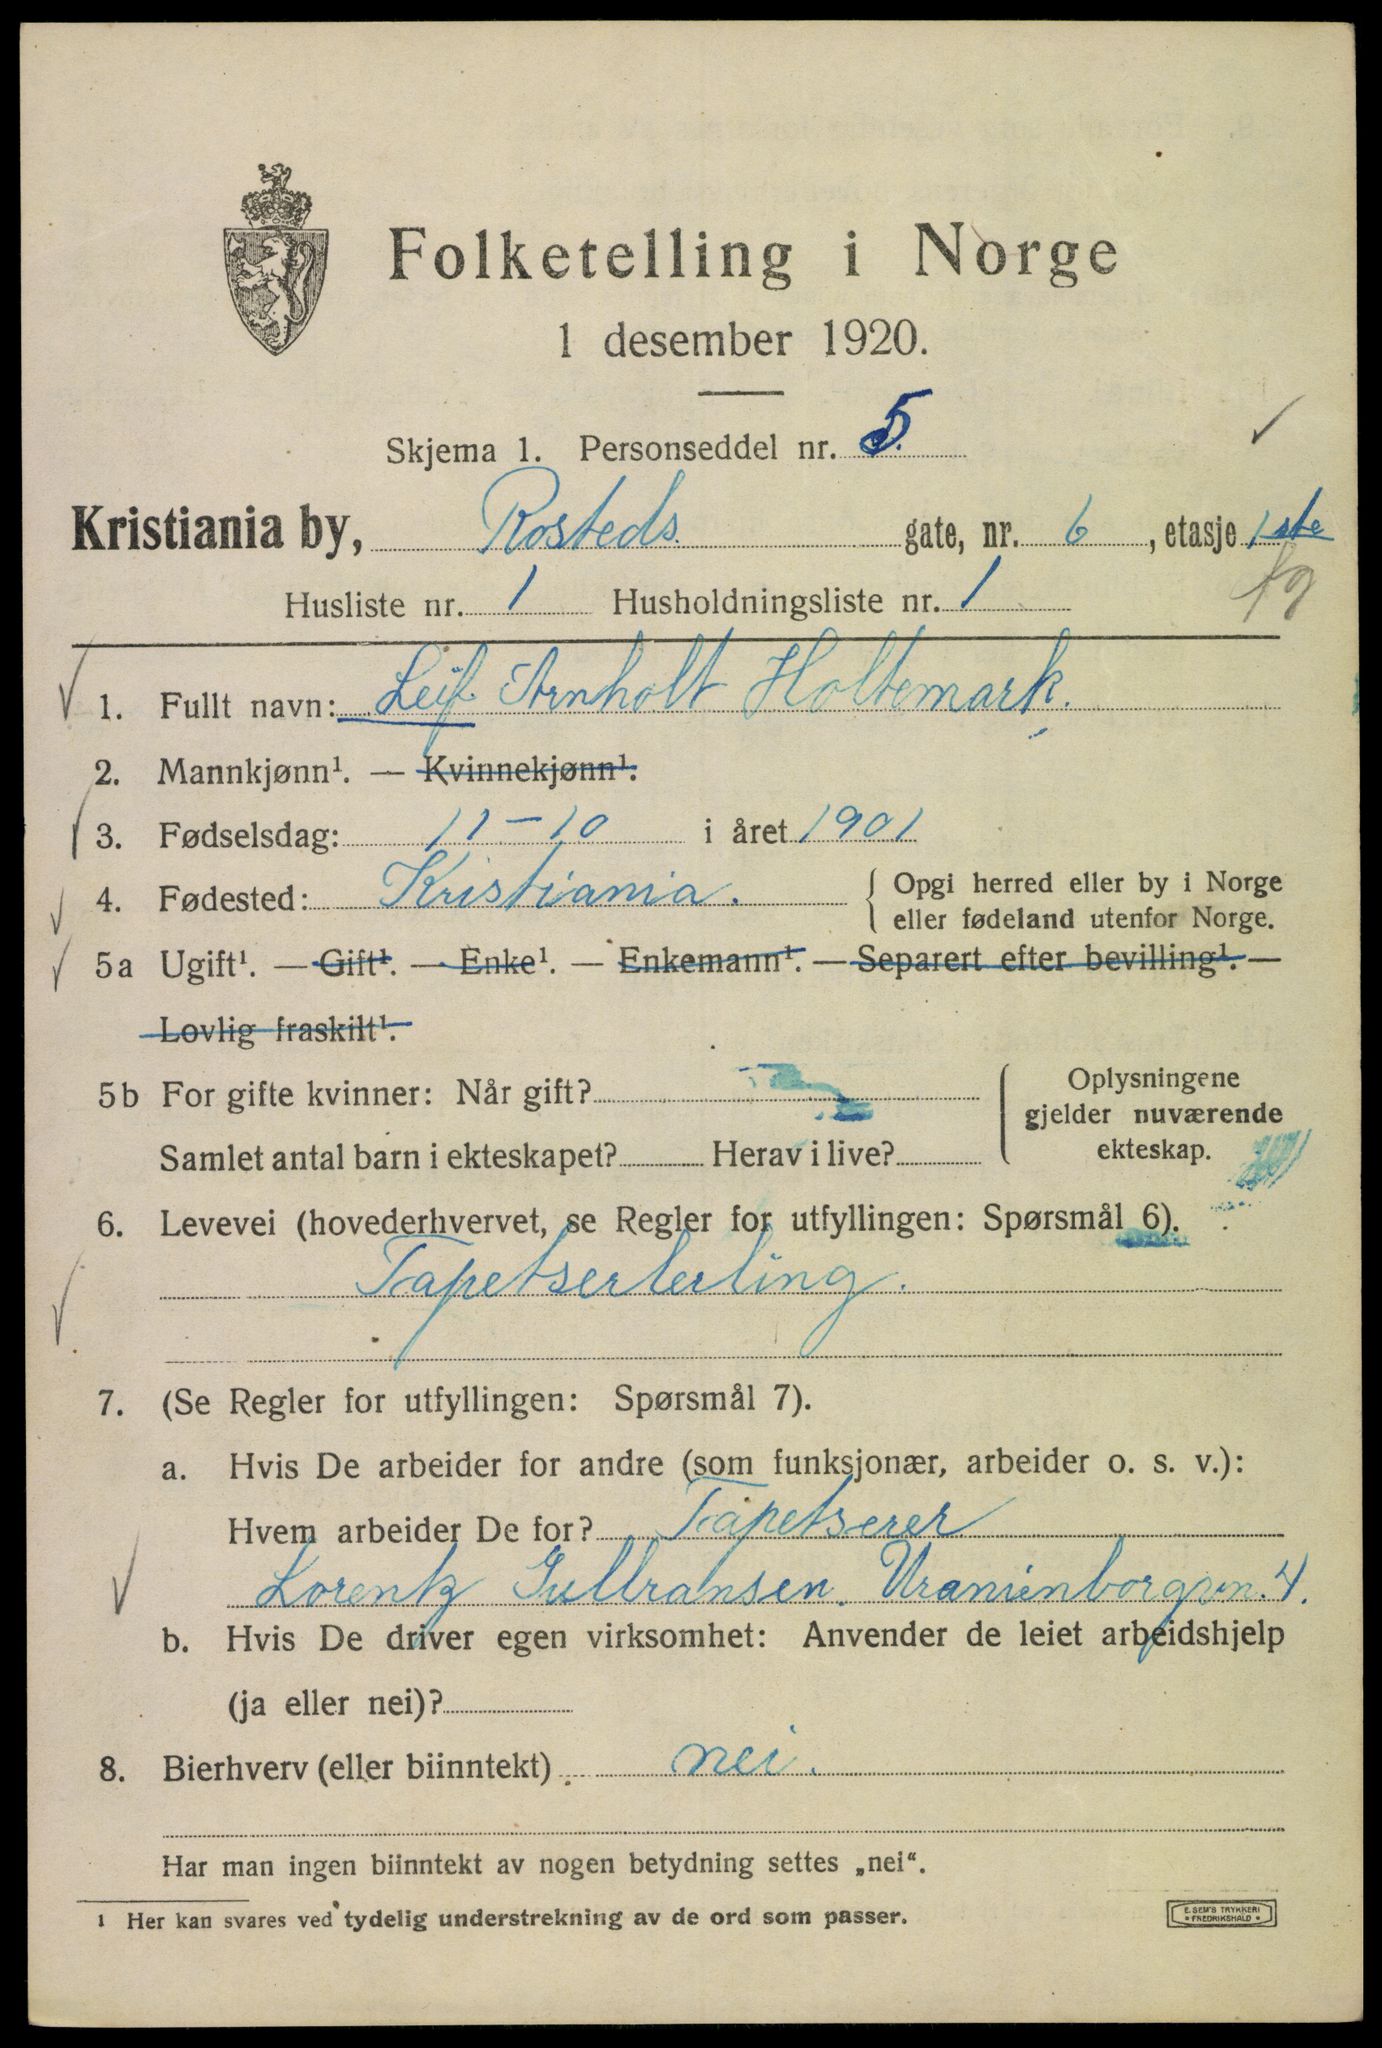 Folketelling i Norge
1 desember 1920.
Skjema 1. Personseddel nr. 5.
Kristiania by, Rosteds gate, nr. 6, etasje 1ste
Husliste nr. 1 Husholdningsliste nr. 1
1. Fullt navn: Leif Arnholt Holtemark.
2. Mannkjønn¹. — Kvinnekjønn¹.
3. Fødselsdag: 11-10 i året 1901
4. Fødested: Kristiania. { Opgi herred eller by i Norge
eller fødeland utenfor Norge.
5a Ugift¹. — Gift¹. — Enke¹. — Enkemann¹. — Separert efter bevilling¹. —
Lovlig fraskilt¹.
5b For gifte kvinner: Når gift? { Oplysningene
gjelder nuværende
Samlet antal barn i ekteskapet? Herav i live? ekteskap.
6. Levevei (hovederhvervet, se Regler for utfyllingen: Spørsmål 6).
Tapetserlerling.
7. (Se Regler for utfyllingen: Spørsmål 7).
a. Hvis De arbeider for andre (som funksjonær, arbeider o. s. v.):
Hvem arbeider De for? Tapetserer
Lorentz Gulbransen. Uranienborgvn. 4.
b. Hvis De driver egen virksomhet: Anvender de leiet arbeidshjelp
(ja eller nei)?
8. Bierhverv (eller biinntekt) nei.
Har man ingen biinntekt av nogen betydning settes „nei“.
1 Her kan svares ved tydelig understrekning av de ord som passer.
E. SEM'S TRYKKERI
• FREDRIKSHALD •